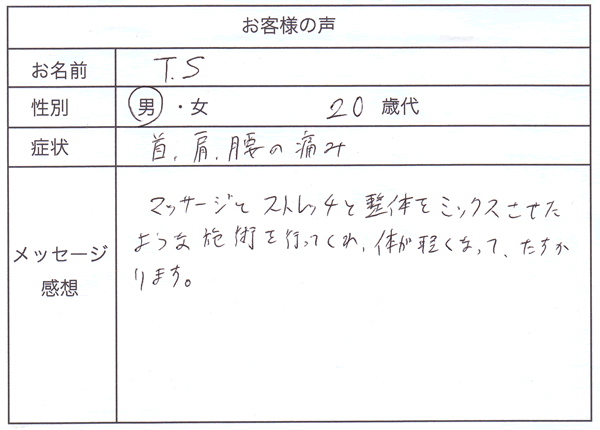 お客様の声
お名前 T.S
性別 男・女 20 歳代
症状 首、肩、腰の痛み
メッセージ
感想
マッサージとストレッチと整体をミックスさせた
ような施術を行ってくれ、体が軽くなって、たすか
ります。